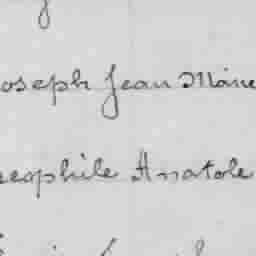 oseph Jean Marie
eophile Anatole